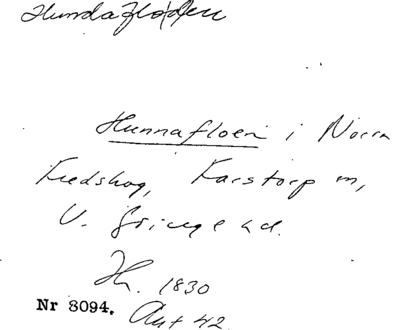 Hundafloden
Hunnafloen i Norra
Fredskog, Karstorp m,
V. Göinge hd.
Jh. 1830
Nr 8094. Akt 42